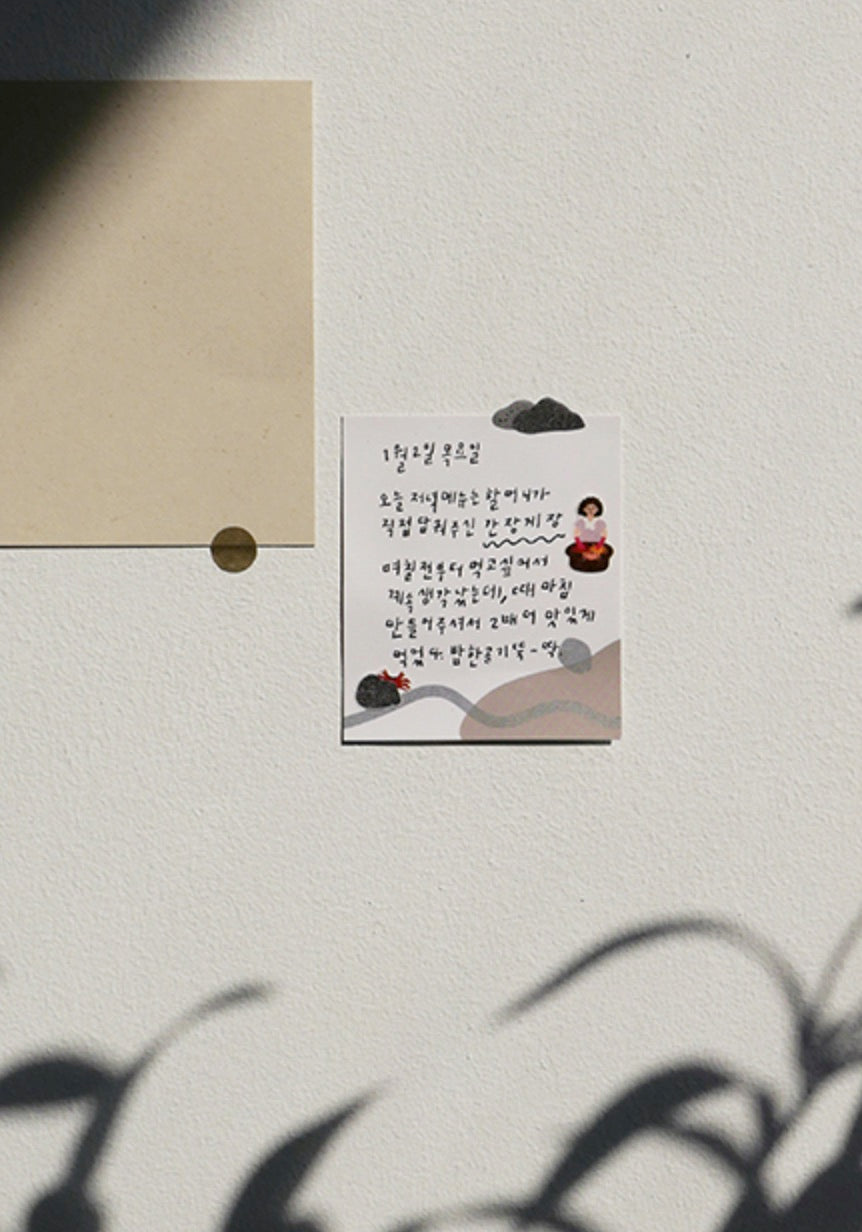 1월2일 목요일
오늘 저녁메뉴는 할머니가
직접 담궈주신 간장게장
며칠전부터 먹고싶어서
계속 생각났는데, 때마침
만들어주셔서 2배 더 맛있게
먹었다. 밥한공기 뚝-딱.